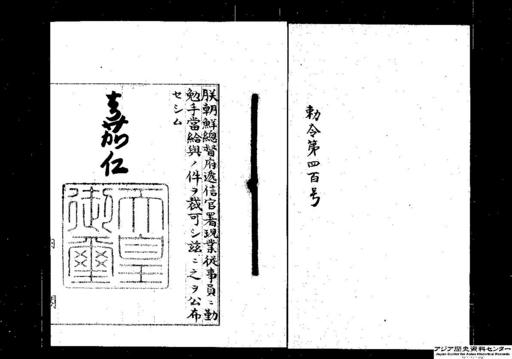 勅令第四百号
朕朝鮮總督府遞信官署現業從事員ニ勤
勉手當給與ノ件ヲ裁可シ玆ニ之ヲ公布
セシム
嘉仁
天皇
御璽
アジア歴史資料センター
Japan Center for Asian Historical Records